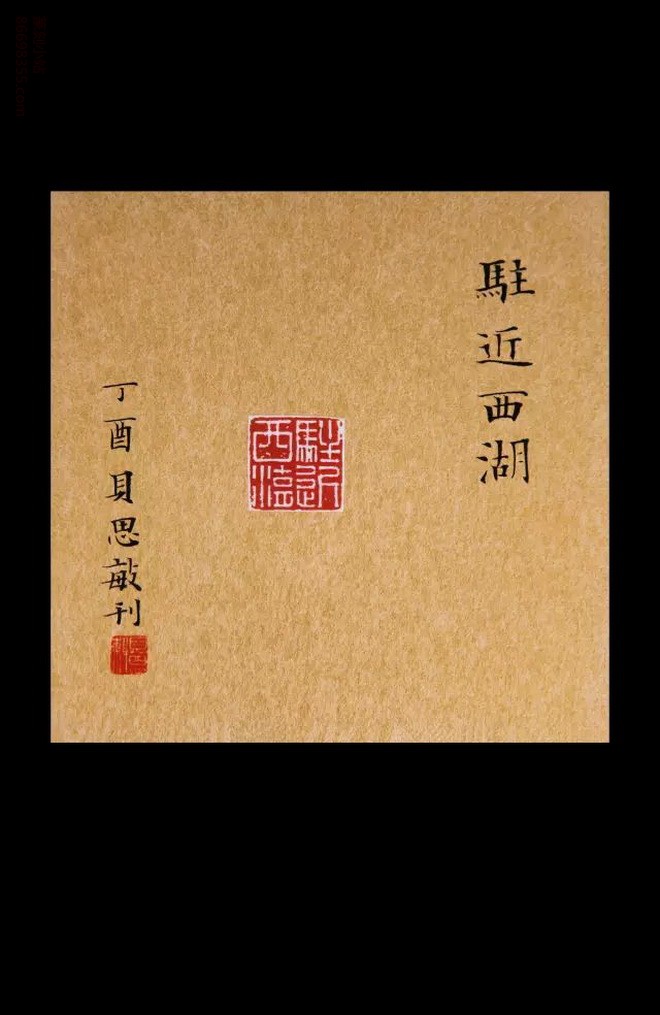 駐近西湖
駐近西湖
丁酉貝思敏刊